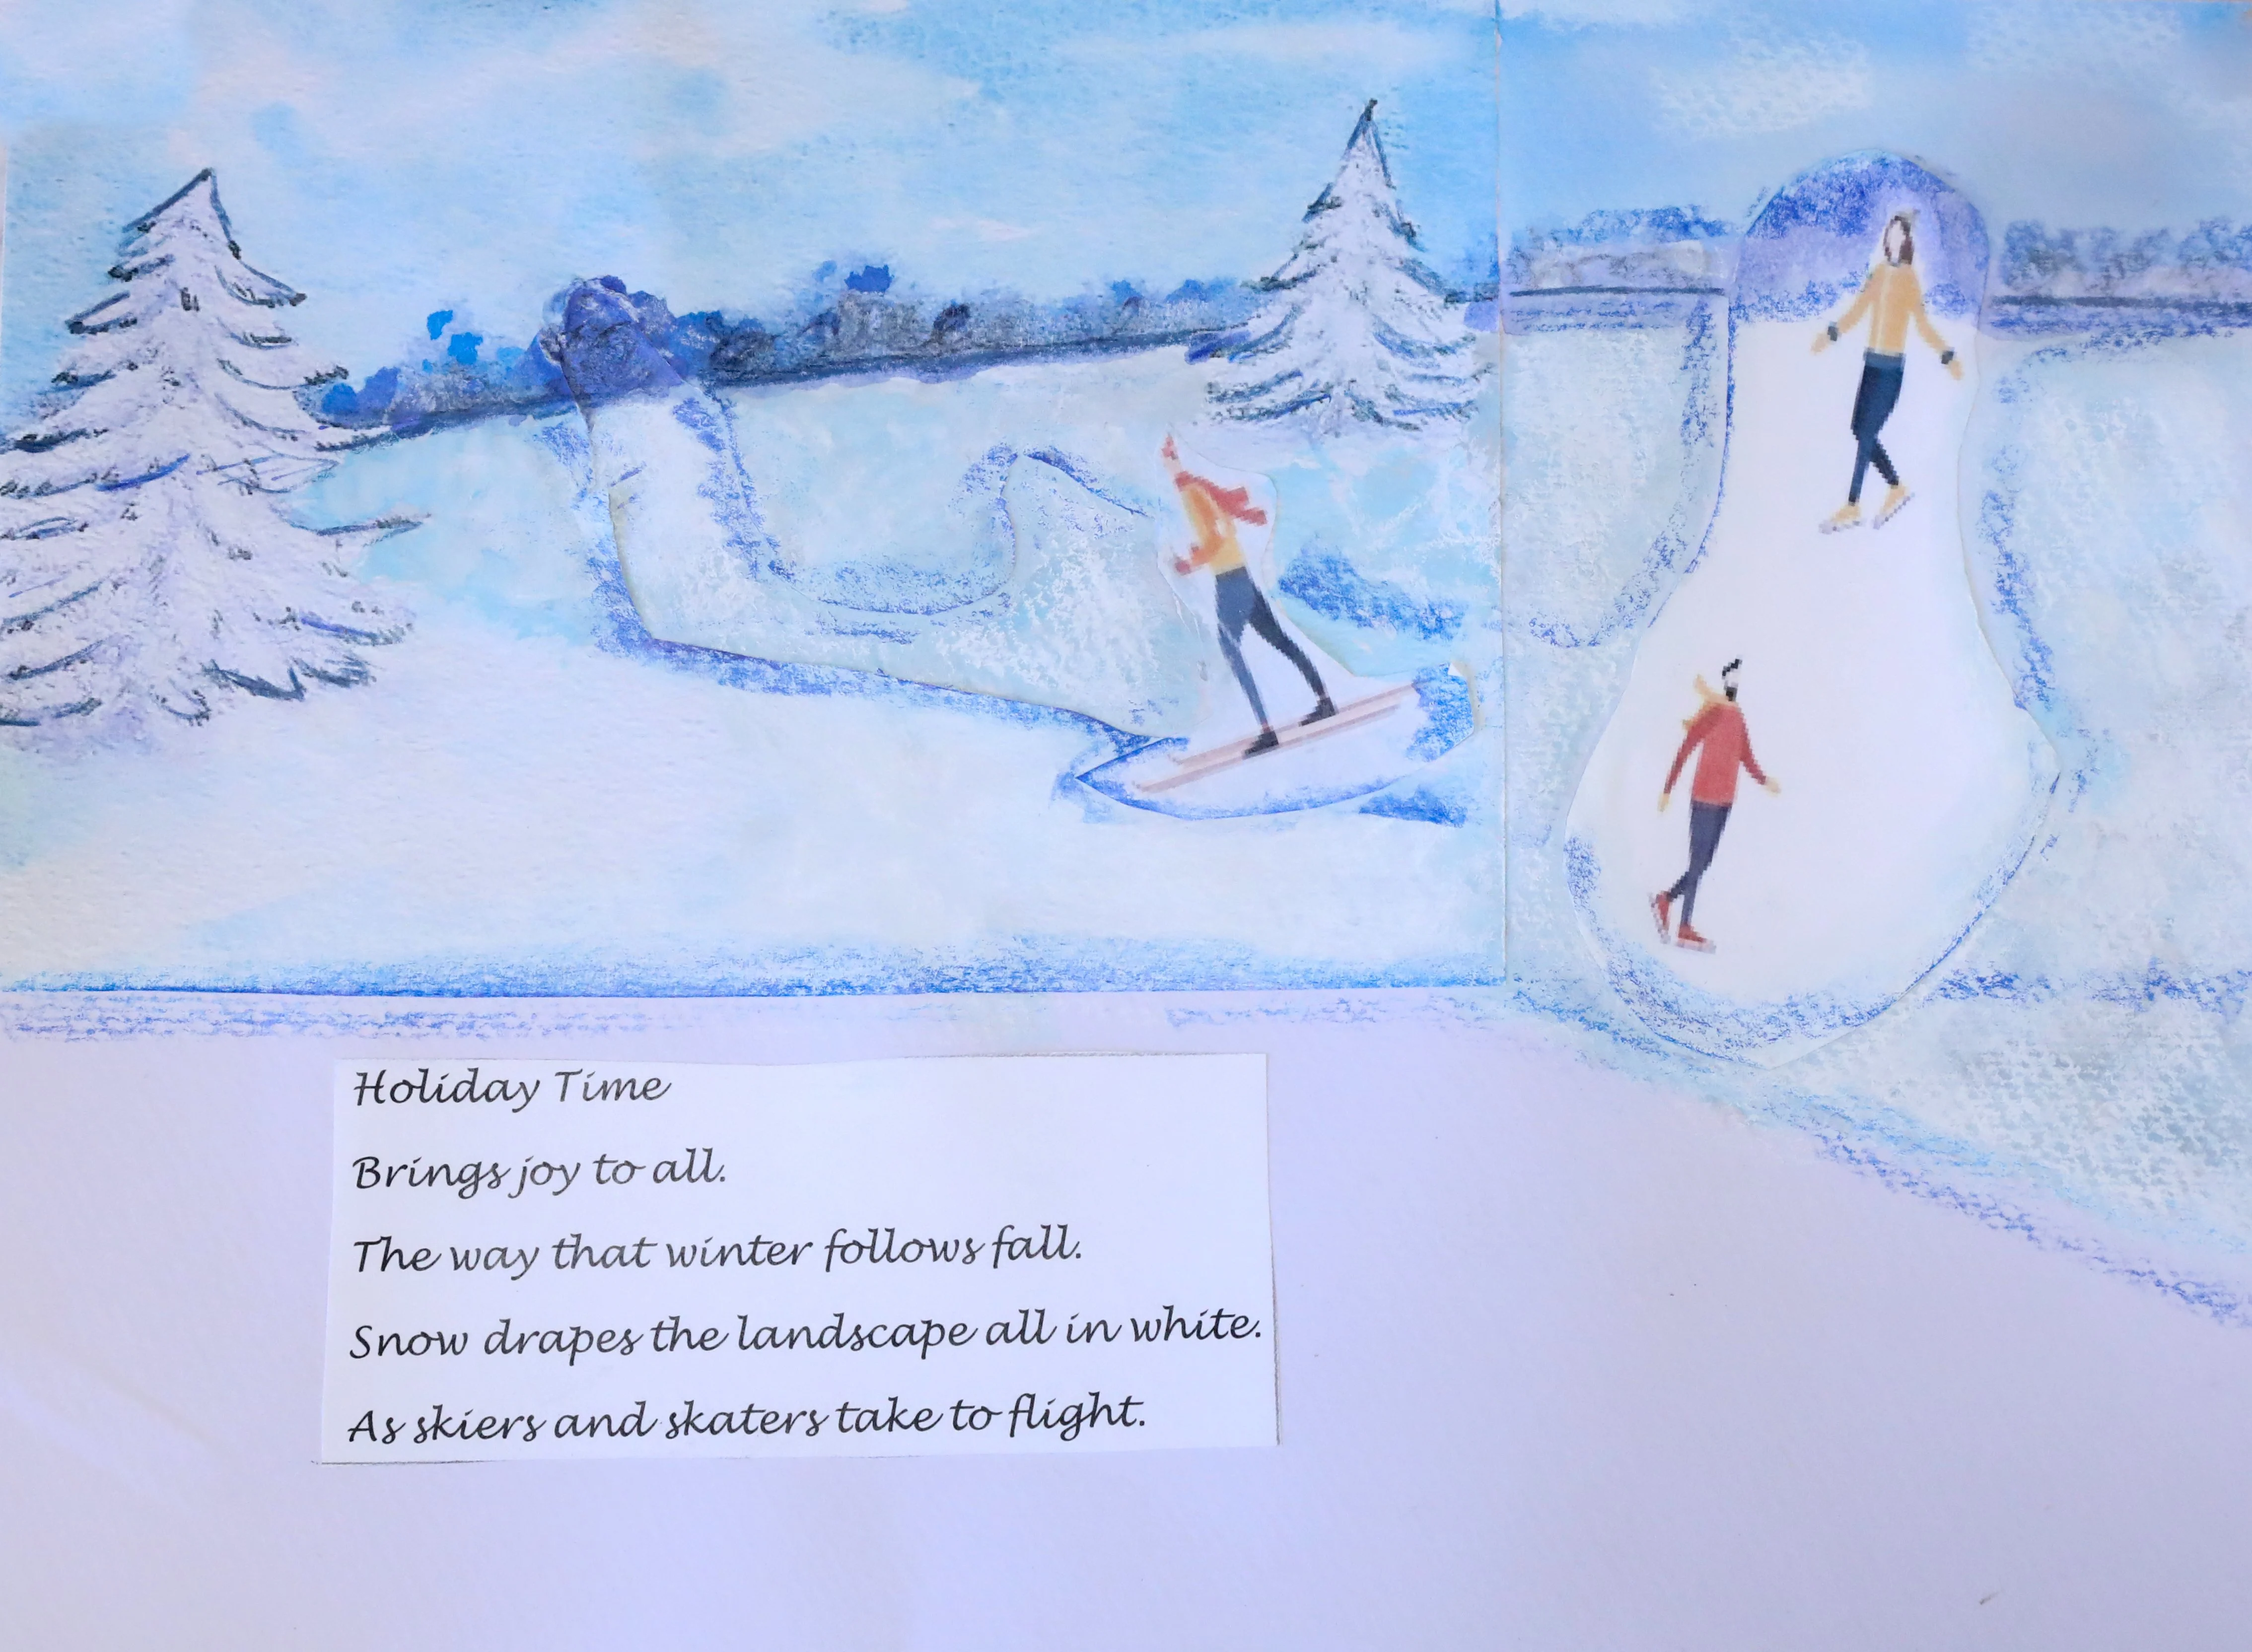 Holiday Time
Brings joy to all.
The way that winter follows fall.
Snow drapes the landscape all in white.
As skiers and skaters take to flight.